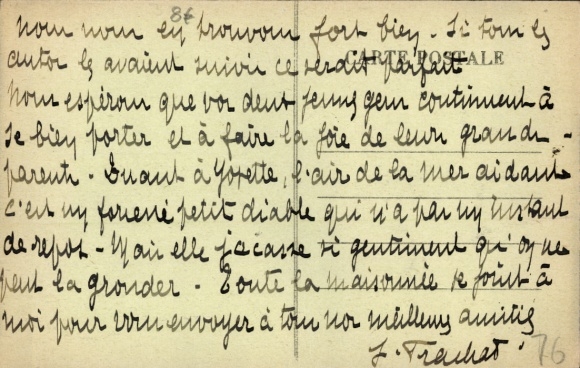 86
CARTE POSTALE
Nous nous en trouvons fort bien. Si tous les
autres les avaient suivis ce serait parfait
Nous espérons que vos deux jeunes gens continuent à
se bien porter et à faire la joie de leurs grands-
parents - Quant à Yozette, l'air de la mer aidant
c'est un forcené petit diable qui n'a pas un instant
de repos - Mais elle jacasse si gentiment qu'on ne
peut la gronder - Toute la maisonnée se joint à
moi pour vous envoyer à tous nos meilleurs amitiés
76